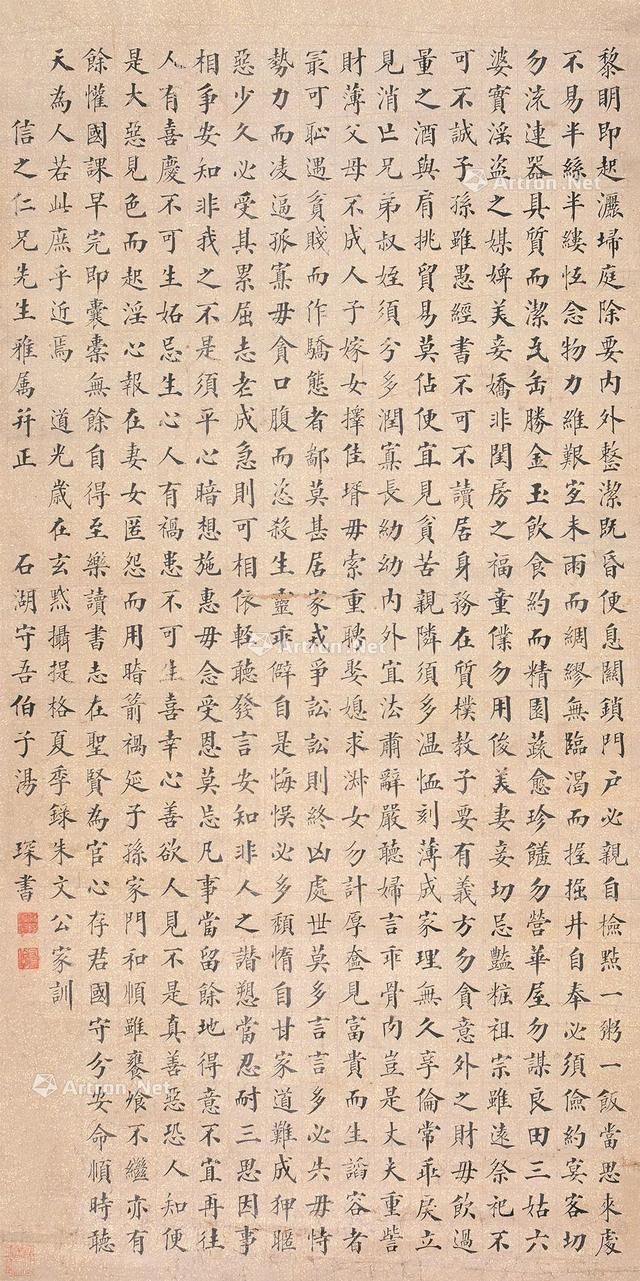 黎明即起灑埽庭除要内外整潔既昏便息關鎖門户必親自檢點一粥一飯當思來處
不易半絲半縷恆念物力維艱宜未雨而綢繆無臨渴而掘井自奉必須儉約宴客切
勿流連器具質而潔瓦缶勝金玉飲食約而精園蔬愈珍饈勿營華屋勿謀良田三姑六
婆實淫盜之媒婢美妾嬌非閨房之福童僕勿用俊美妻妾切忌豔粧祖宗雖遠祭祀不
可不誠子孫雖愚經書不可不讀居身務在質樸教子要有義方勿貪意外之財毋飲過
量之酒與肩挑貿易莫佔便宜見貧苦親隣須多温恤刻薄成家理無久享倫常乖戾立
見消亡兄弟叔姪須分多潤寡長幼幼内外宜法肅辭嚴聽婦言乖骨肉豈是丈夫重貲
財薄父母不成人子嫁女擇佳壻毋索重聘娶媳求淑女勿計厚奩見富貴而生諂容者
最可恥遇貧賤而作驕態者鄙莫甚居家戒爭訟訟則終凶處世莫多言言多必失毋恃
勢力而凌逼孤寡毋貪口腹而恣殺生靈乖僻自是悔悞必多頹惰自甘家道難成狎暱
惡少久必受其累屈志老成急則可相依輕聽發言安知非人之譖愬當忍耐三思因事
相爭安知非我之不是須平心暗想施惠毋念受恩莫忘凡事當留餘地得意不宜再往
人有喜慶不可生妬忌生心人有禍患不可生喜幸心善欲人見不是真善惡恐人知便
是大惡見色而起淫心報在妻女匿怨而用暗箭禍延子孫家門和順雖饔飧不繼亦有
餘懽國課早完即囊橐無餘自得至樂讀書志在聖賢為官心存君國守分安命順時聽
天為人若此庶乎近焉 道光歲在玄黓攝提格夏季錄朱文公家訓
信之仁兄先生雅属并正 石湖守吾伯子湯 琛書
Artron.Net
Artron.Net
Artron.Net